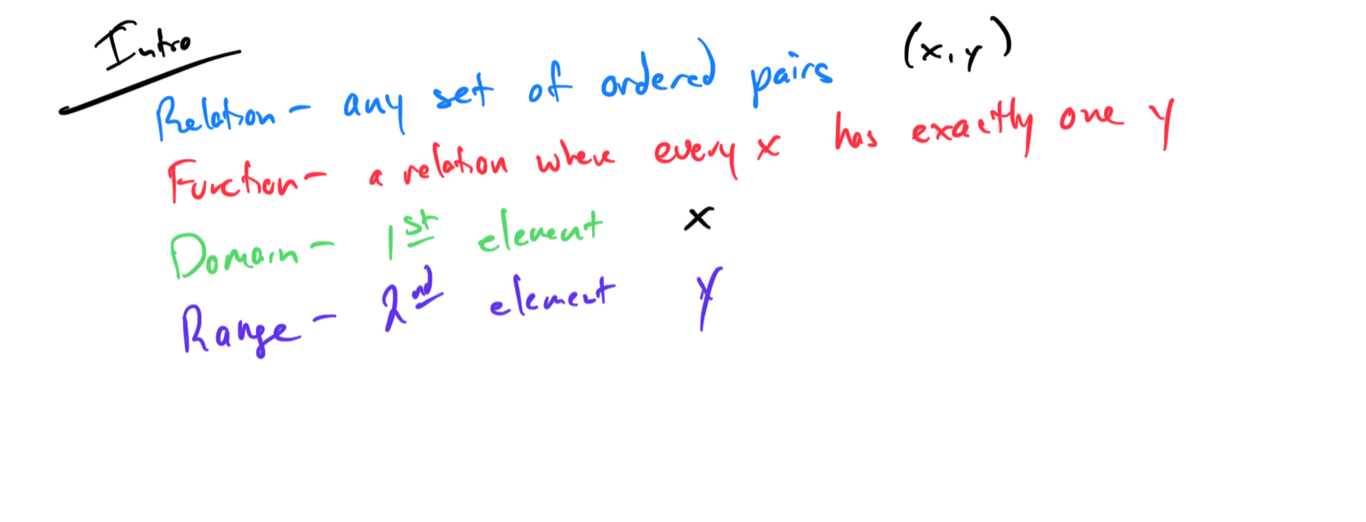 Intro
Relation – any set of ordered pairs (x,y)
Function – a relation where every x has exactly one y
Domain – 1st element x
Range – 2nd element y